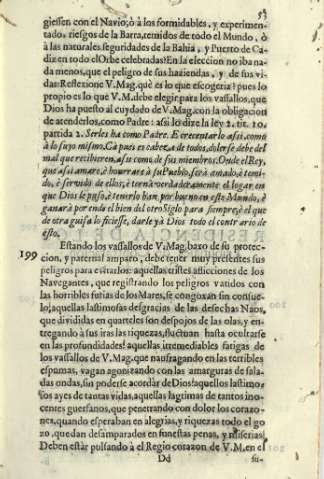 53
giessen con el Navio; ò à los formidables, y experimen-
tados riesgos de la Barra, temidos de todo el Mundo, ò
à las naturales seguridades de la Bahia, y Puerto de Ca-
diz en todo el Orbe celebradas? En la eleccion no iba na-
da menos, que el peligro de sus haziendas, y de sus vi-
das. Reflexione V. Mag. què es lo que escogeria? pues lo
propio es lo que V. M. debe elegir para los vassallos, que
Dios ha puesto al cuydado de V. Mag. con la obligacion
de atenderlos, como Padre: assi lo dize la ley 2. tit. 10.
partida 2. Serles ha como Padre. E crecentarlo assi, como
à lo suyo mismo. Cà pues es cabeça de todos, dolerse debe del
mal que recibieren, assi como de sus miembros. Onde el Rey,
que assi amare, è hourare à su Pueblo, serà amado, è temi-
do, è servido de ellos, è ternà verdaderamente el logar, en
que Dios le puso, è tenerlo han por bueno en este Mundo, è
ganarà por ende el bien del otro Siglo para siempre, è el que
de otra guisa lo ficiesse, darleyà Dios todo el contrario de
esto.
199 Estando los vassallos de V. Mag. baxo de su protec-
cion, y paternal amparo, debe tener muy presentes sus
peligros para evitarlos: aquellas tristes aflicciones de los
Navegantes, que registrando los peligros vatidos con
las horribles furias de los Mares, se congoxan sin consue-
lo; aquellas lastimosas desgracias de las desechas Naos,
que divididas en quarteles son despojos de las olas, y en-
tregando à sus iras las riquezas, fluctuan hasta ocultarse
en las profundidades! aquellas irremediables fatigas de
los vassallos de V. Mag. que naufragando en las terribles
espumas, vagan agonizando con las amarguras de sala-
das ondas, sin poderse acordar de Dios! aquellos lastimo-
sos ayes de tantas vidas, aquellas lagrimas de tantos ino-
centes guerfanos, que penetrando con dolor los corazo-
nes, quando esperaban en alegrias, y riquezas todo el go
zo, quedan desamparados en funestas penas, y miserias!
Deben estàr pulsando à el Regio corazon de V. M. en el
Dd su-